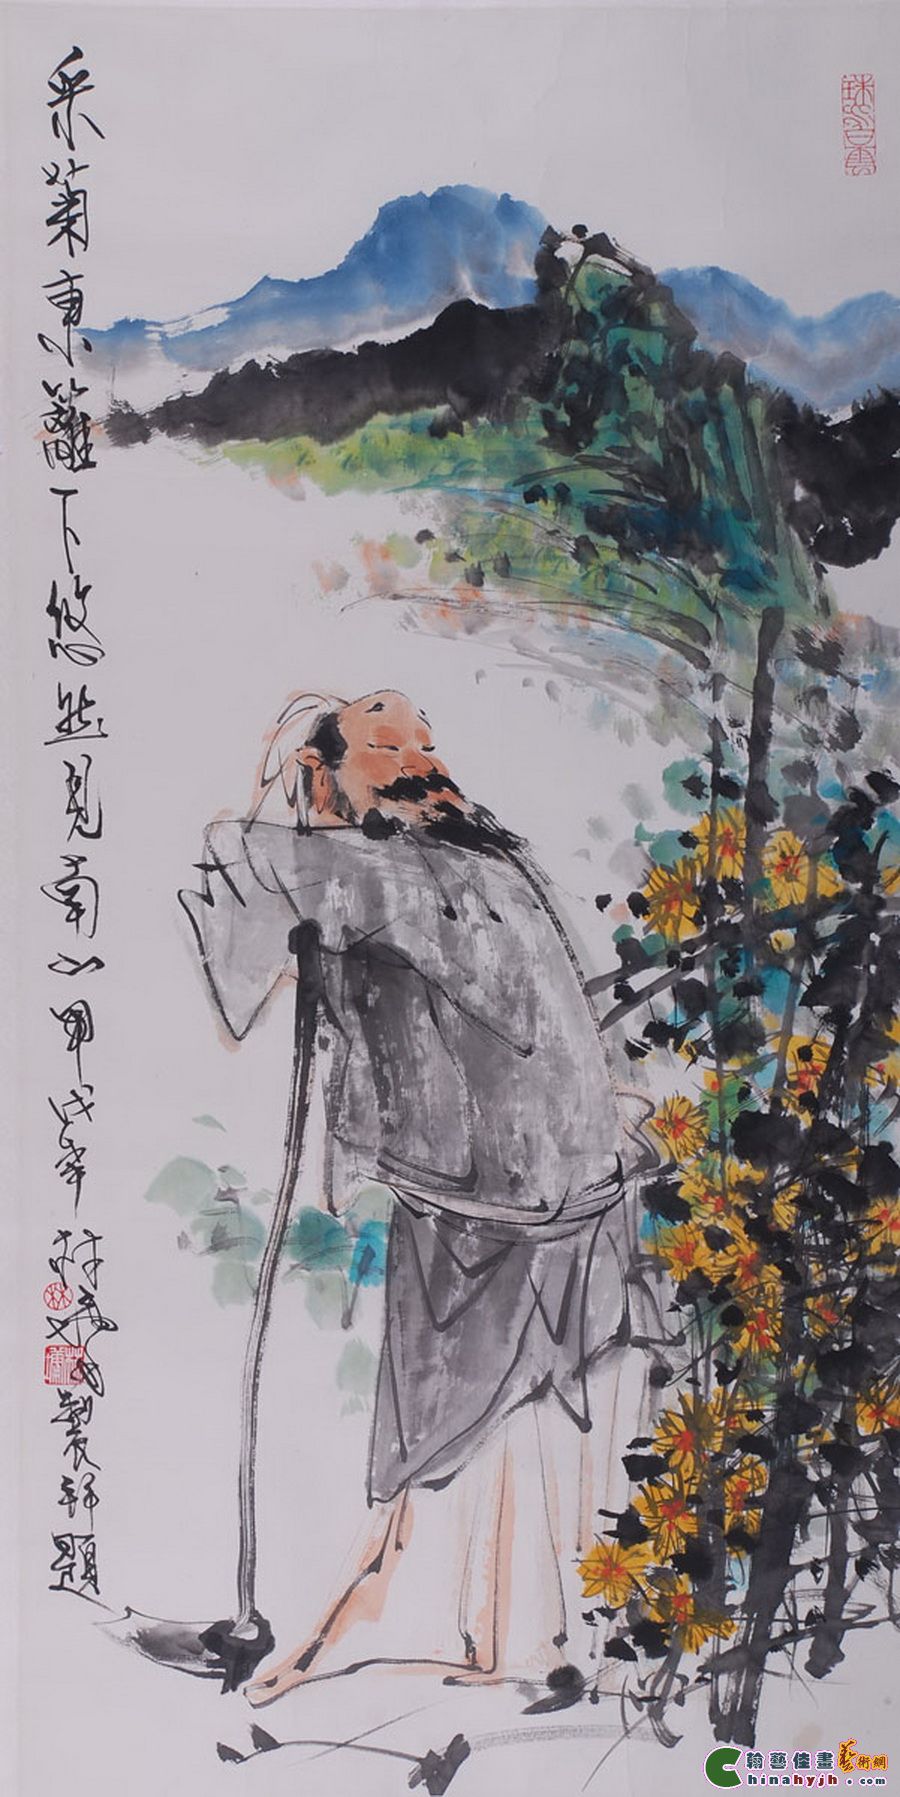 采菊東籬下悠然見南山甲戌年林墉製并題
翰藝佳畫藝術網
Chinahyjh.com